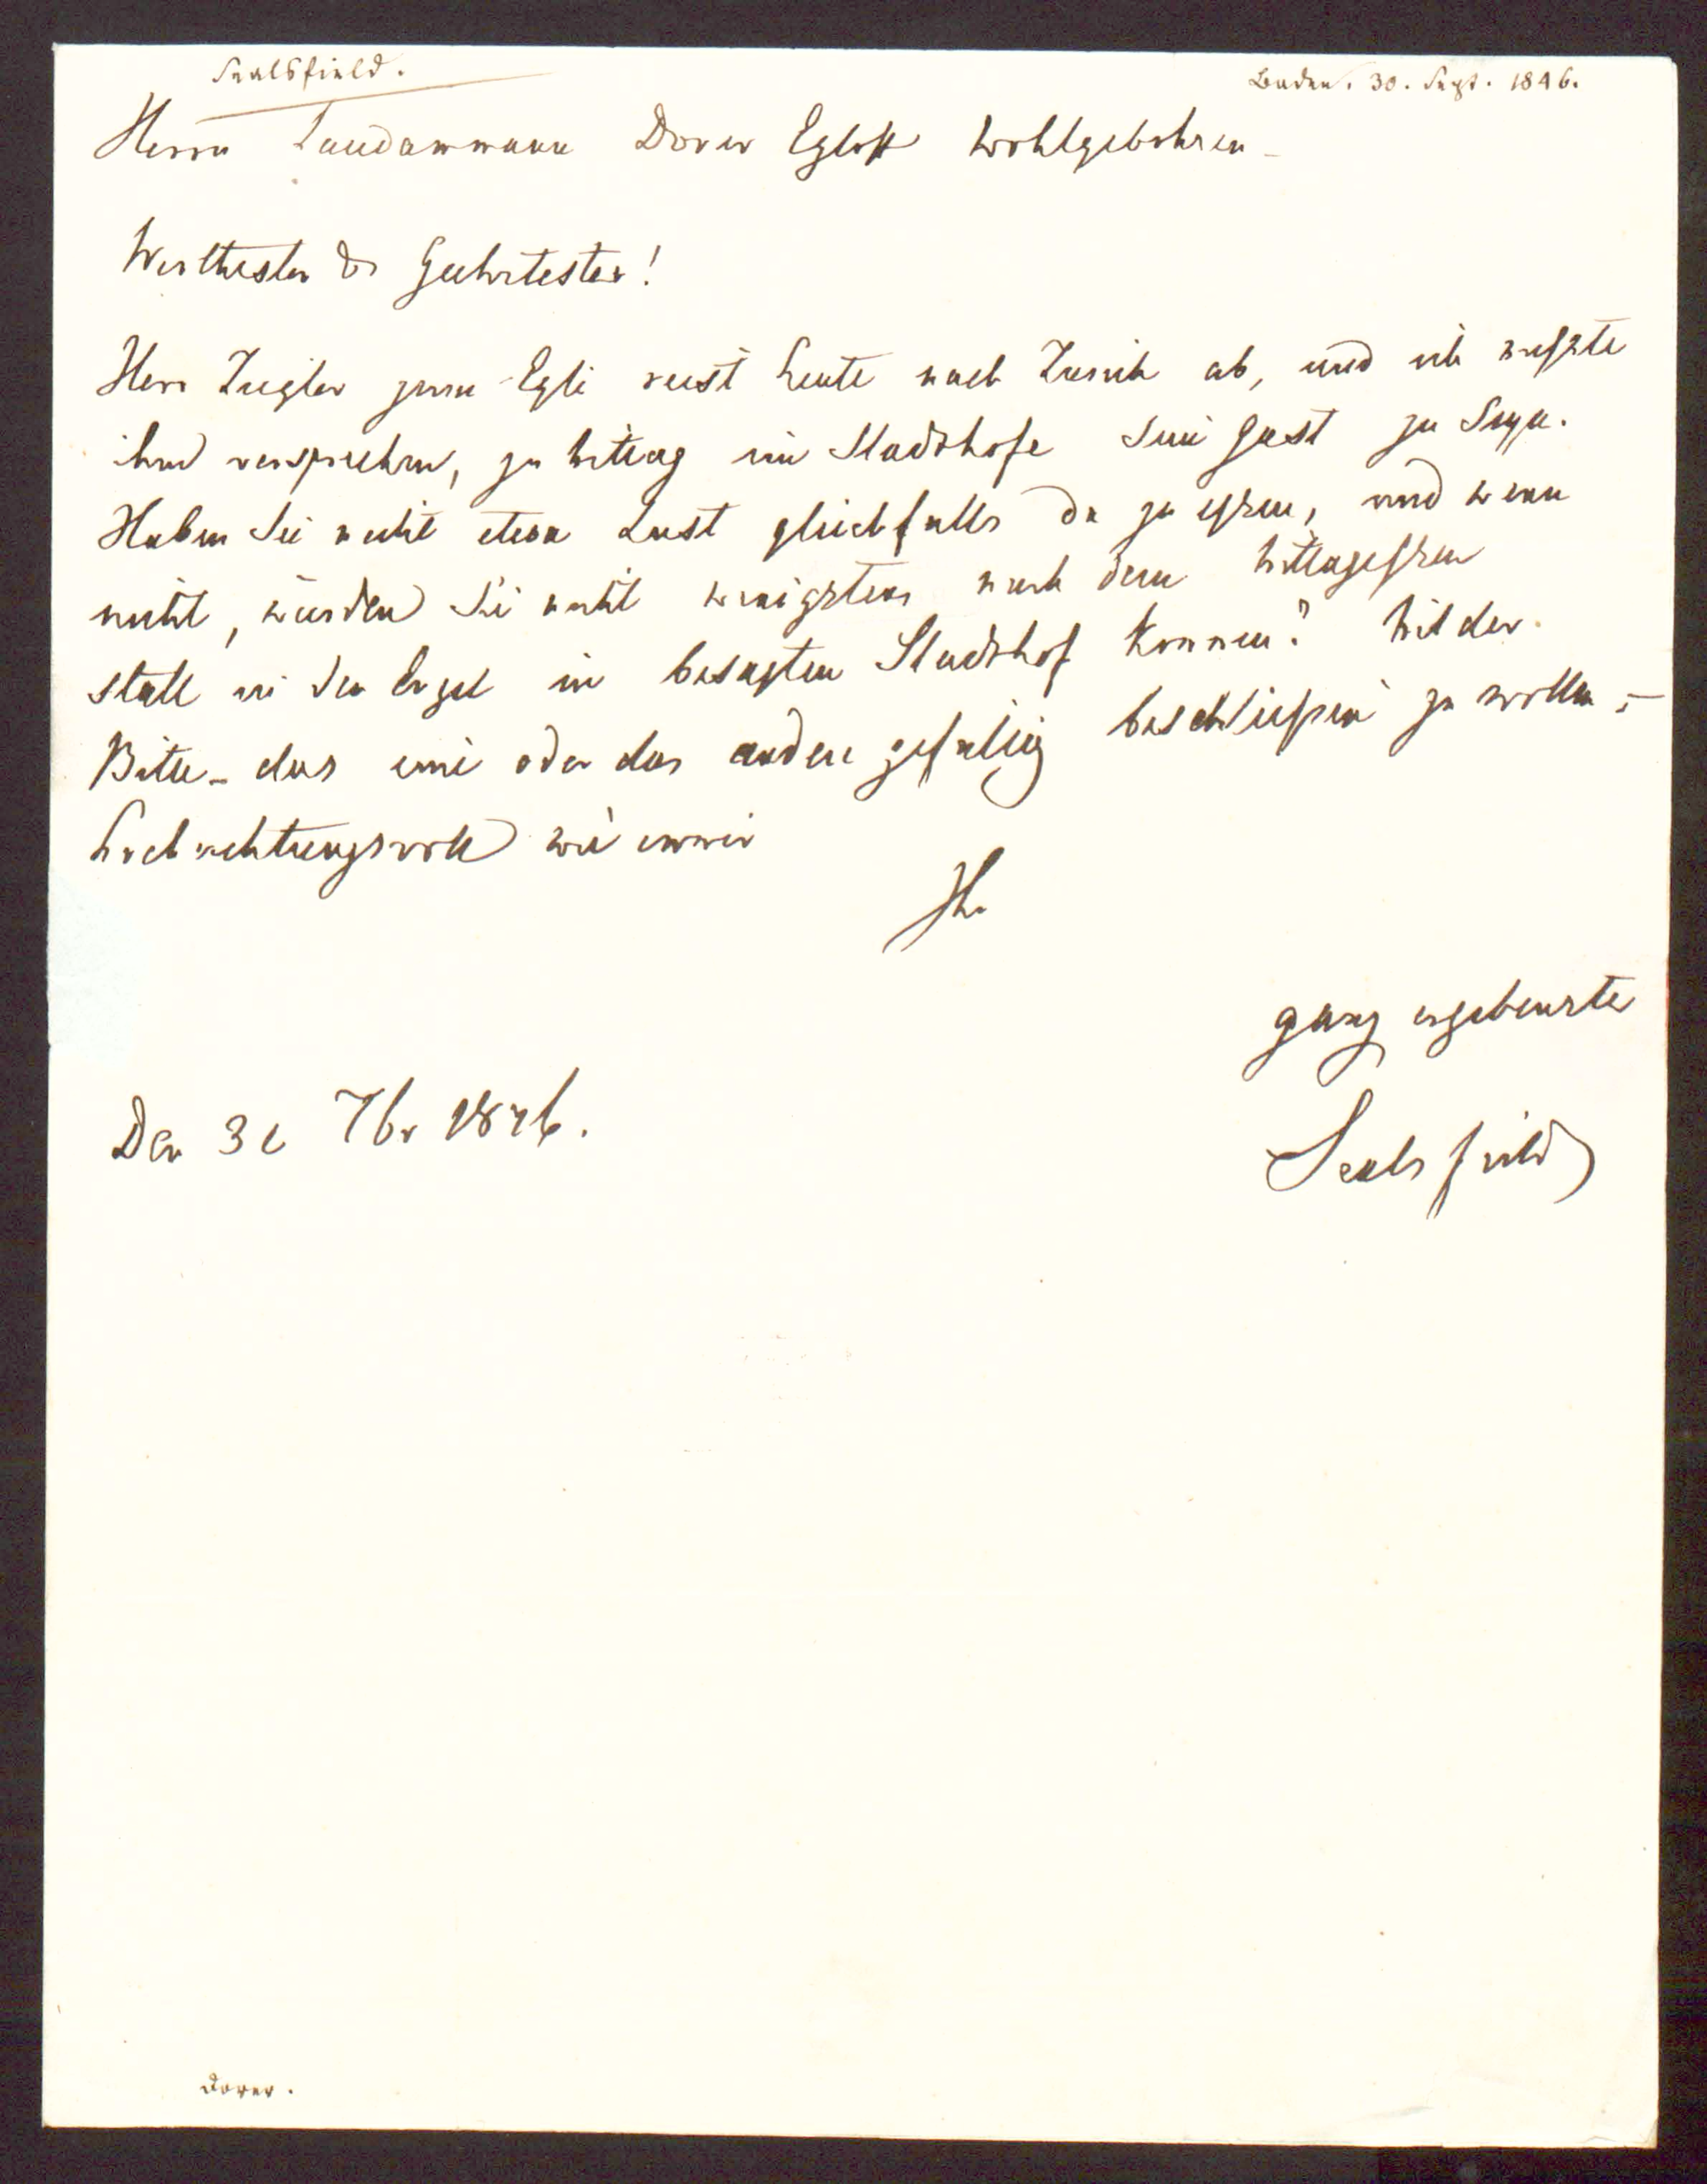 Sealsfield.
Baden. 30. Sept. 1846.
Herrn Landammann Dorer Egloff Wohlgebohren
Werthester & Geehrtester!
Herr Ziegler zum Egli reist heute nach Zurich ab, und ich mußte
ihm versprechen, zu Mittag im Stadthofe sein Gast zu seyn.
Haben Sie nicht etwa Lust gleichfalls da zu essen, und wenn
nicht, würden Sie nicht wenigstens nach dem Mittagessen
statt in den Engel in besagten Stadthof kommen? Mit der
Bitte – das eine oder das andere gefallig beschließen zu wollen –
hochachtungsvoll wie immer
Ihr
ganz ergebenster
Den 30 7br 1846.
Sealsfield
Dorer.